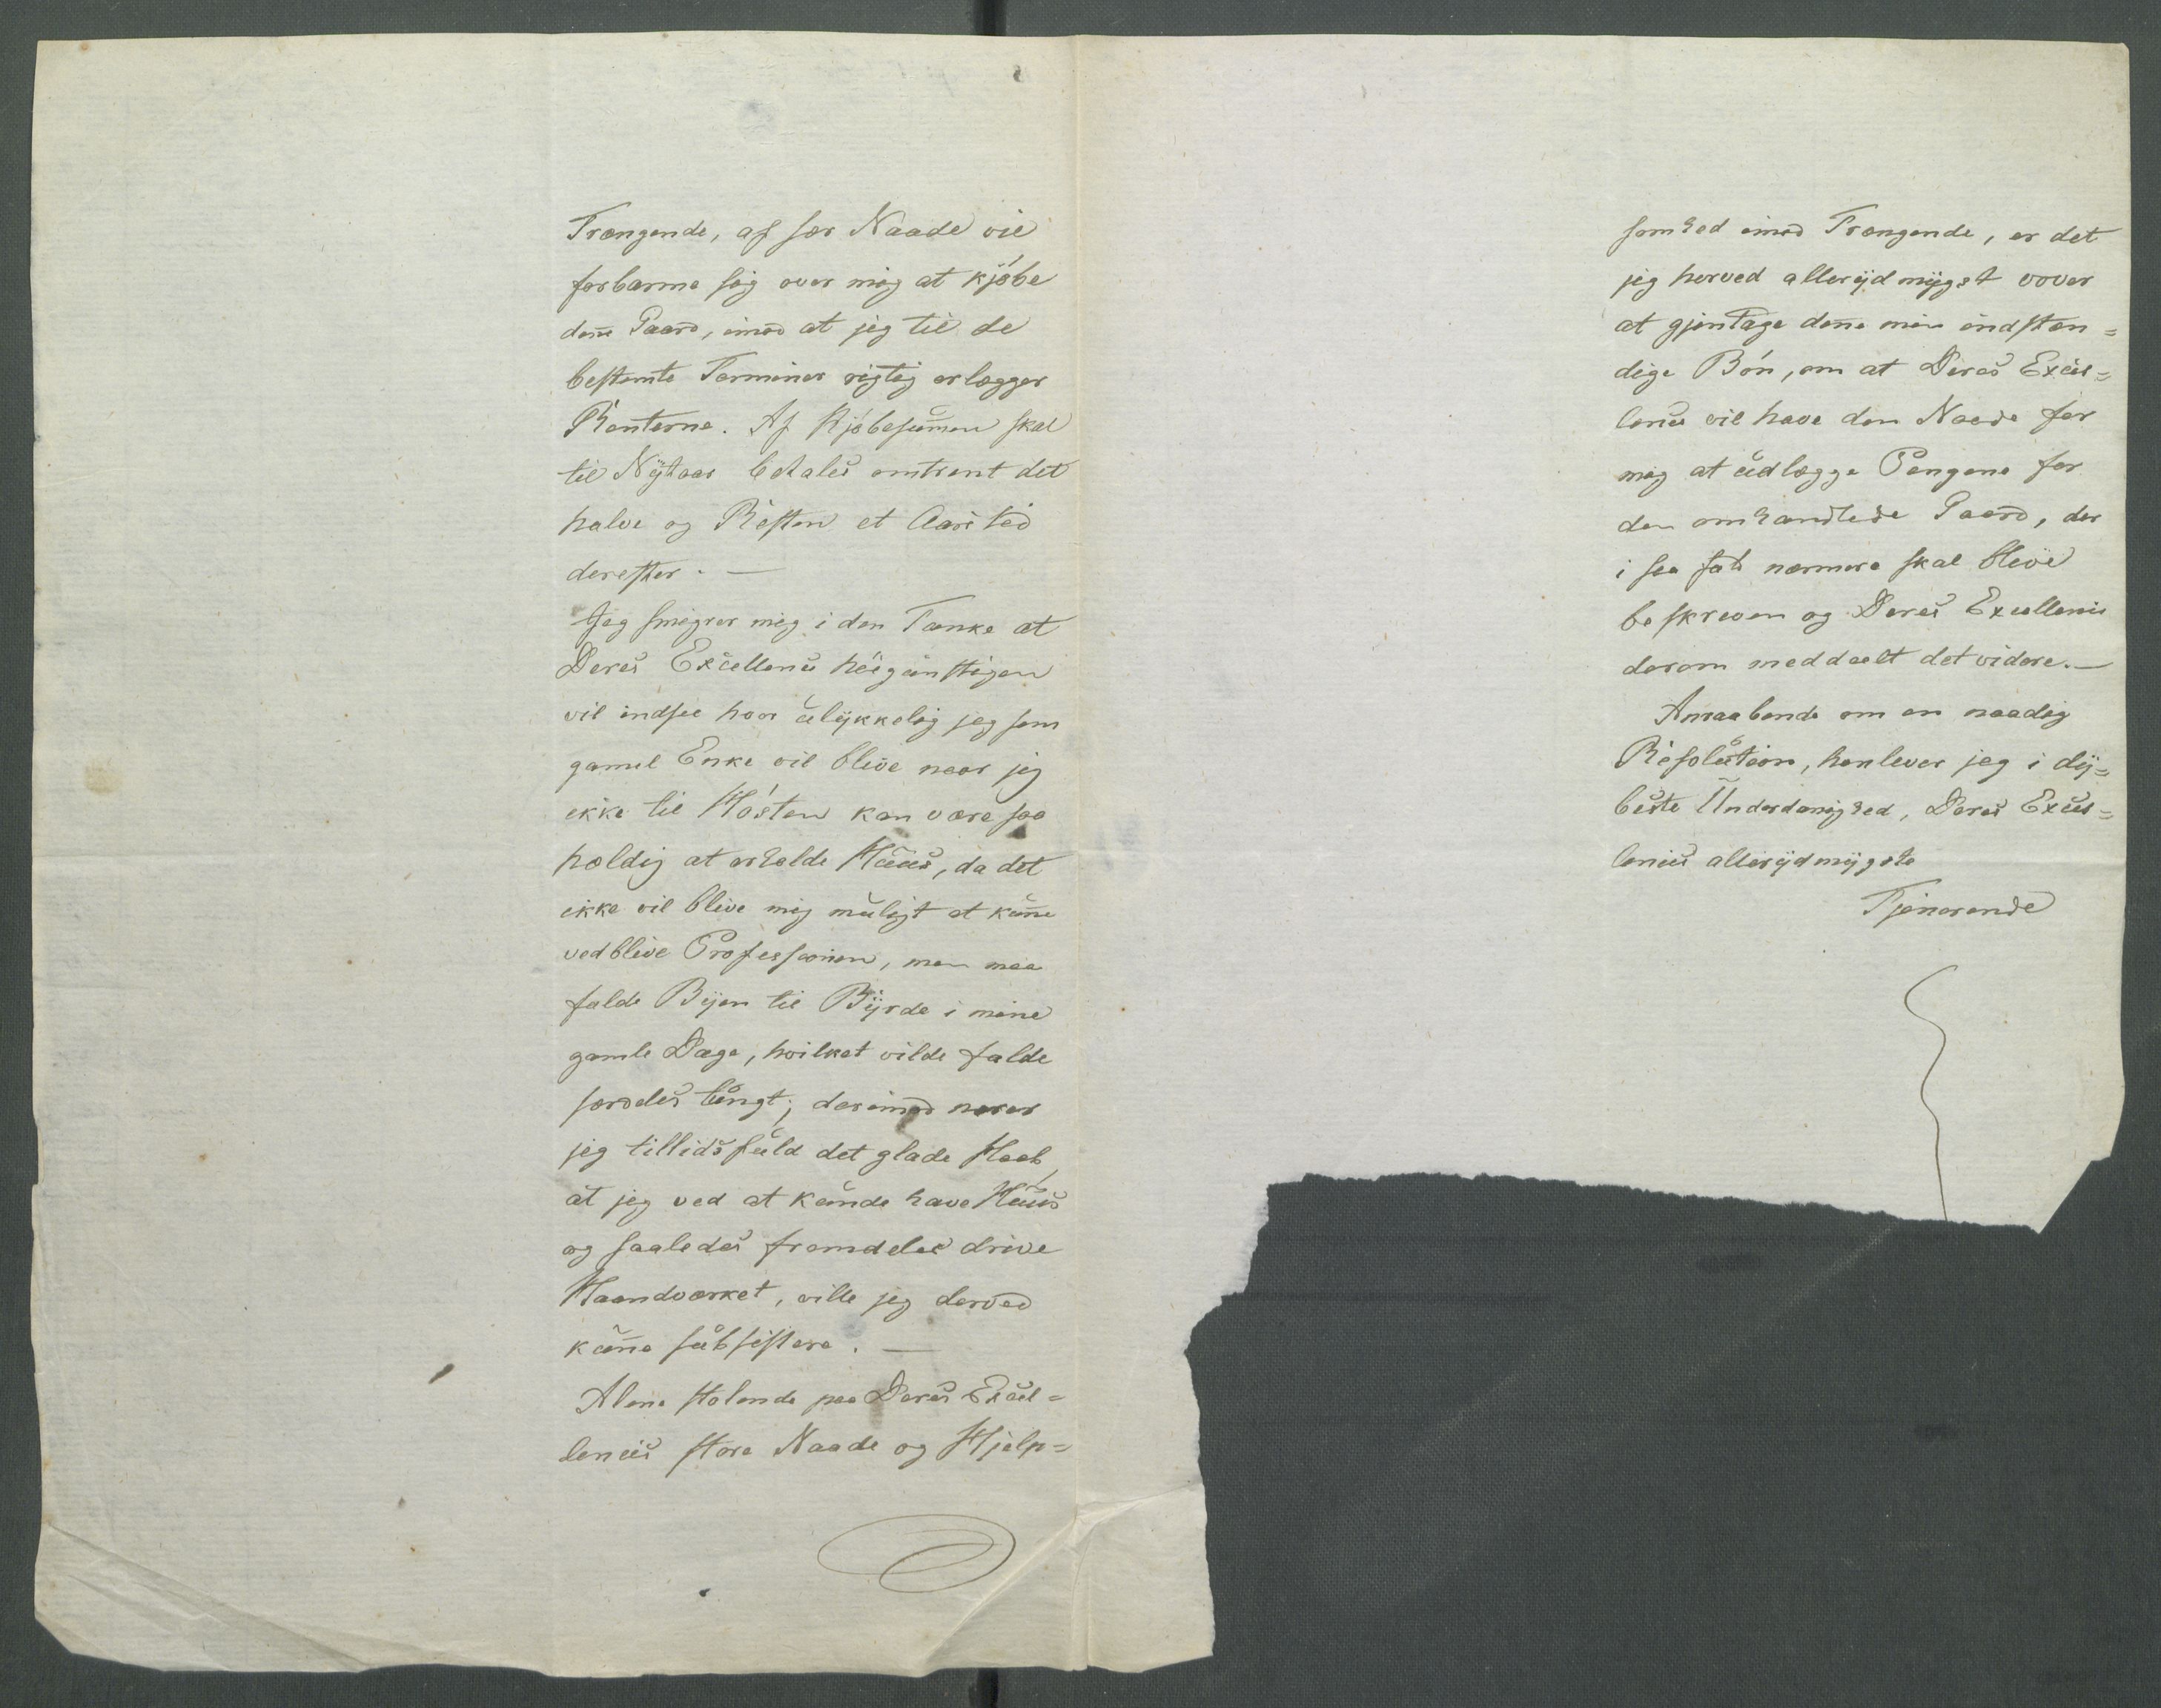 Trængende, af sær Naade vil
forbarme sig over mig at kjöbe
denne Gaard, imod at jeg til de
bestemte Terminer rigtig erlægger
Renterne. Af Kjöbesummen skal
til Nÿtaar betales omtrent det
halve og Resten et Aars tid
derefter. —
Jeg smigrer mig i den Tanke at
Deres Excellence höigunstigen
vil indsee hvor ulÿkkelig jeg som
gamel Enke vil blive naar jeg
ikke til Hösten kan være saa
heldig at erholde Huus, da det
ikke vil blive mig muligt at kunne
vedblive Professionen, men maa
falde Bÿen til Bÿrde i mine
gamle Dage, hvilket vilde falde
særdeles tungt; derimod nærer
jeg tillidsfuld det glade Haab,
at jeg ved at kunde have Huus
og saaledes fremdeles drive
Haandværket, ville jeg derved
kunne subsistere. —
Alene stolende paa Deres Excel=
lences store Naade og Hjelp=
somhed imod Trængende, er det
jeg herved allerÿdmÿgst vover
at gjentage denne min indstæn=
dige Bön, om at Deres Excel=
lence vil have den Naade for
mig at udlægge Pengene for
den omhandlede Gaard, der
i saa fald nærmere skal blive
beskreven og Deres Excellence
derom meddeelt det videre. —
Anraabende om en naadig
Resolution, henlever jeg i dÿ=
beste Underdanighed, Deres Excel=
lences allerÿdmÿgste
Tjenerende